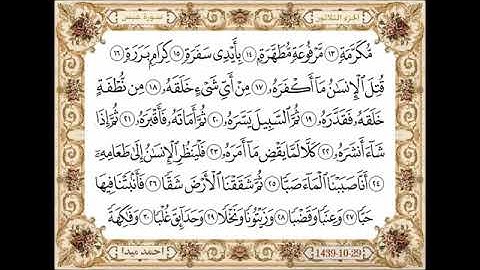 الجزء الثلاثون
سورة عبس
مُّكَرَّمَةٍ ١٣ مَّرْفُوعَةٍ مُّطَهَّرَةٍۭ ١٤ بِأَيْدِى سَفَرَةٍ ١٥ كِرَامٍۭ بَرَرَةٍ ١٦
قُتِلَ ٱلْإِنسَٰنُ مَآ أَكْفَرَهُۥ ١٧ مِنْ أَىِّ شَىْءٍ خَلَقَهُۥ ١٨ مِن نُّطْفَةٍ
خَلَقَهُۥ فَقَدَّرَهُۥ ١٩ ثُمَّ ٱلسَّبِيلَ يَسَّرَهُۥ ٢٠ ثُمَّ أَمَاتَهُۥ فَأَقْبَرَهُۥ ٢١ ثُمَّ إِذَا
شَآءَ أَنشَرَهُۥ ٢٢ كَلَّا لَمَّا يَقْضِ مَآ أَمَرَهُۥ ٢٣ فَلْيَنظُرِ ٱلْإِنسَٰنُ إِلَىٰ طَعَامِهِۦٓ
٢٤ أَنَّا صَبَبْنَا ٱلْمَآءَ صَبًّا ٢٥ ثُمَّ شَقَقْنَا ٱلْأَرْضَ شَقًّا ٢٦ فَأَنۢبَتْنَا فِيهَا
حَبًّا ٢٧ وَعِنَبًا وَقَضْبًا ٢٨ وَزَيْتُونًا وَنَخْلًا ٢٩ وَحَدَآئِقَ غُلْبًا ٣٠ وَفَٰكِهَةً
احمد ميدا
1439-10-29